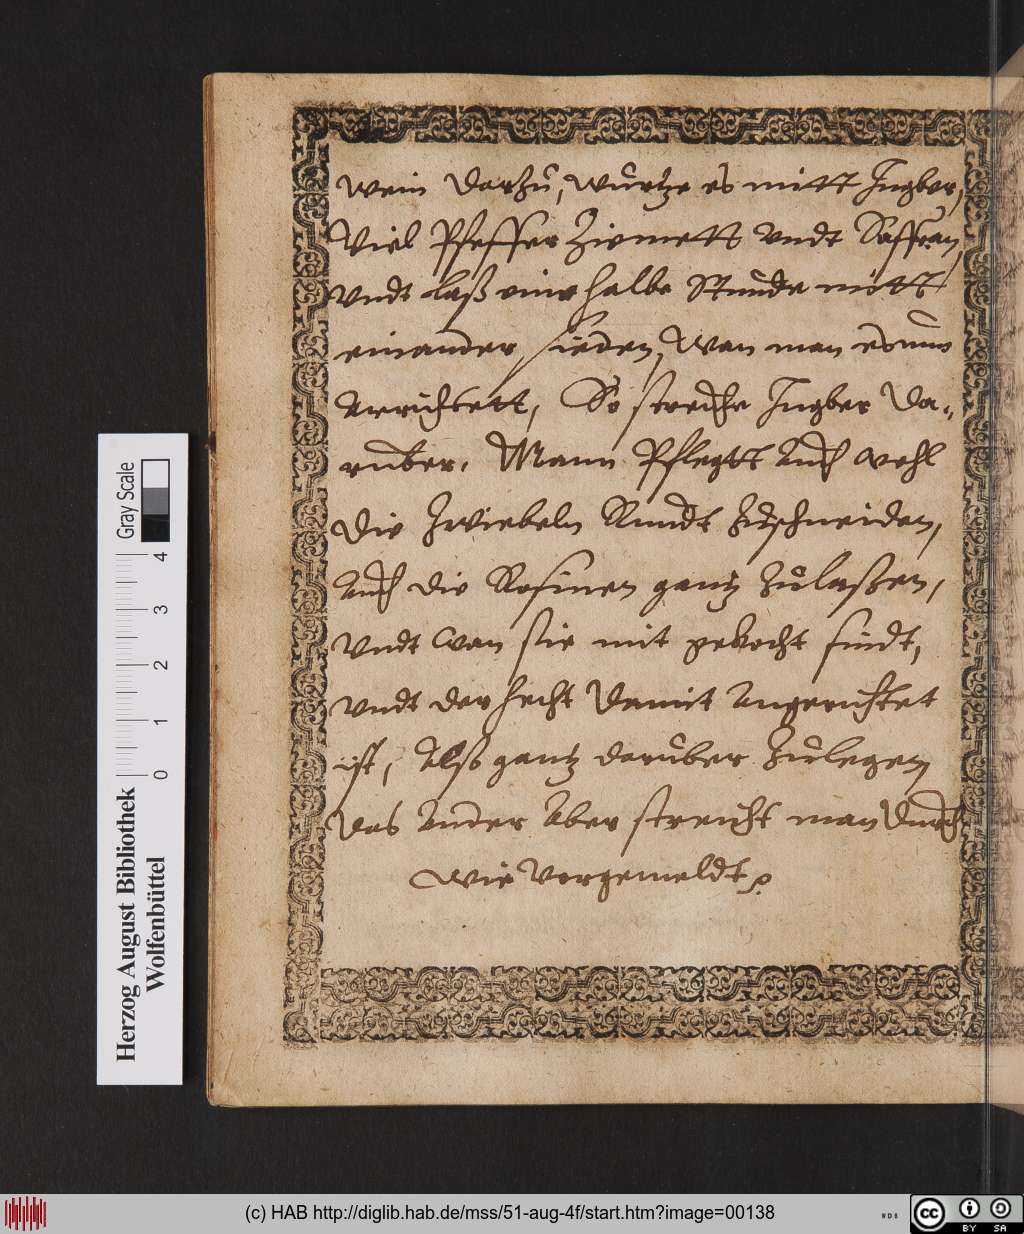 Wein darzu, wurtze es mitt Ingber,
Viel Pfeffer Zimmett undt Saffran,
Undt laß eine halbe Stunde mitt
einander sieden, Wan man es nun
anrichtett, So streuhe Ingber da„
ruber. Mann Pflegtt auch wohl
die Zwiebeln Rundt zuschneiden,
auch die Rosinen gantz zulaßen,
Undt wan sie mit gekocht sindt,
undt der hecht damit angerichtet
ist, Alß gantz daruber zulegen
das ander aber streicht man durch
wie vorgemeldt.
Herzog August Bibliothek
Wolfenbüttel
0 1 2 3 4
Gray Scale
(c) HAB http://diglib.hab.de/mss/51-aug-4f/start.htm?image=00138
WDB
cc
BY SA